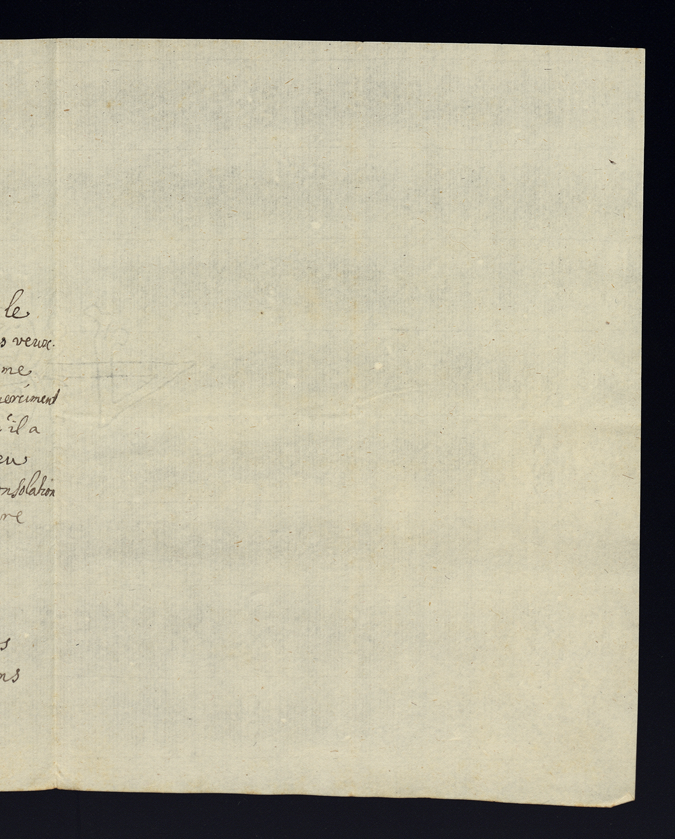 le
s veux.
me
merciment
'il a
eu
onsolation
re
s
ns